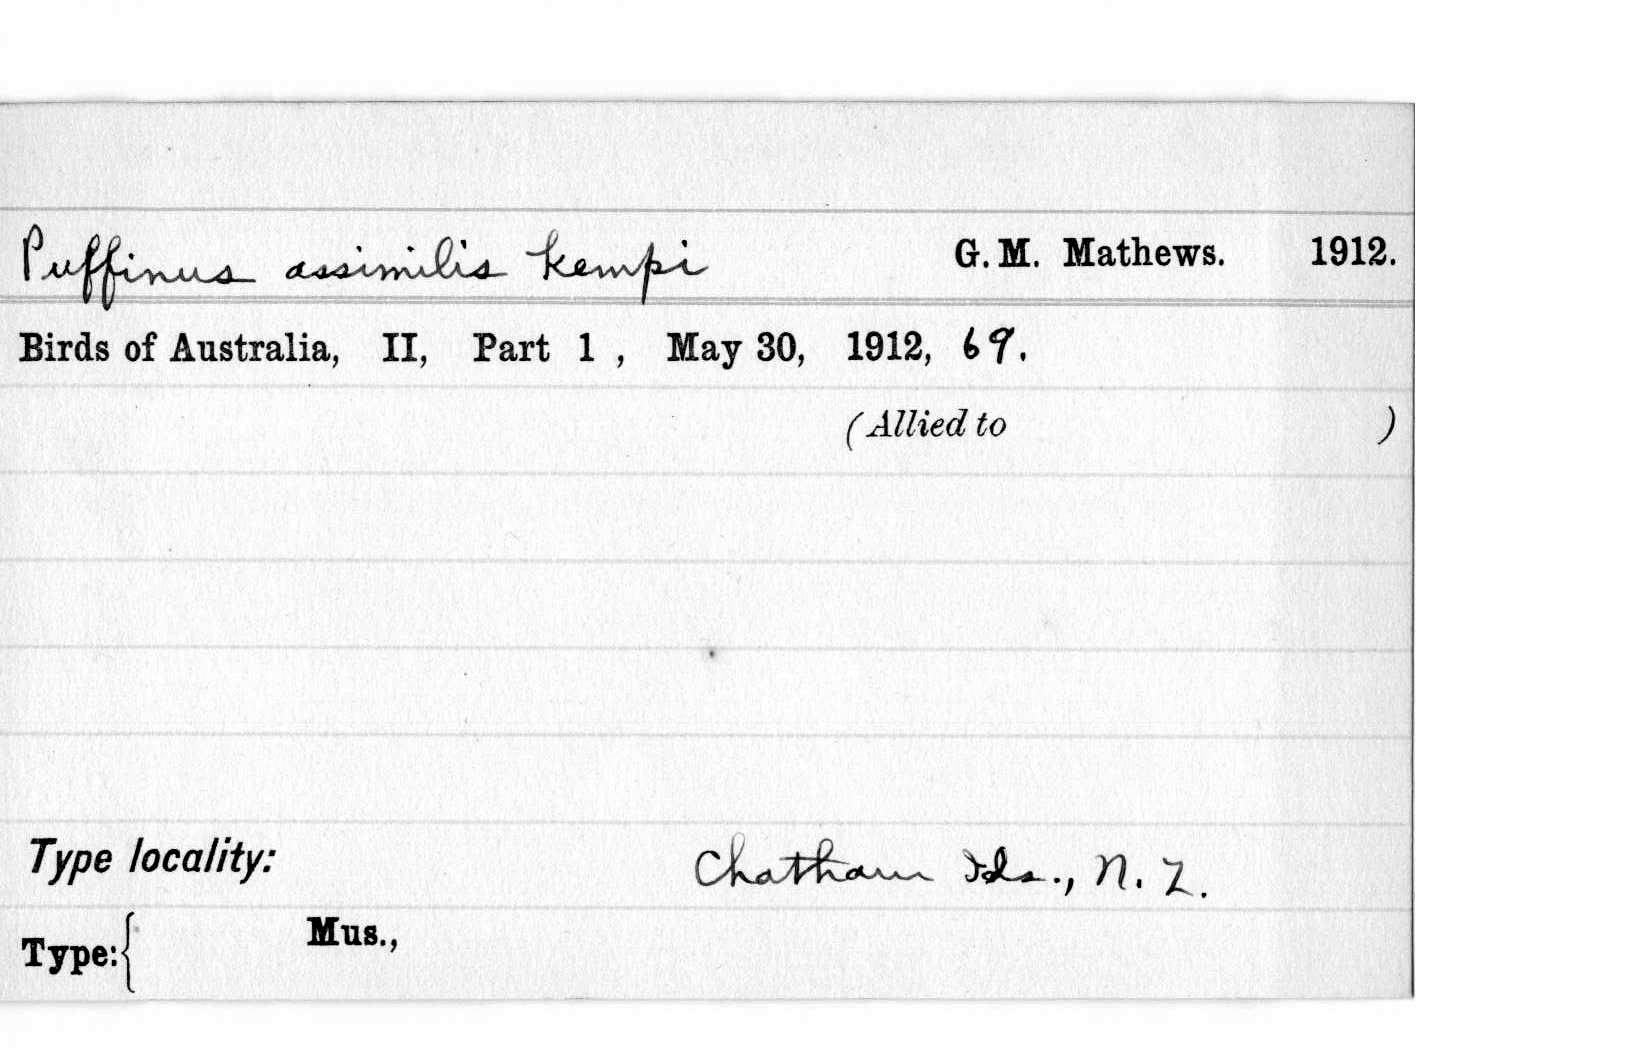 Puffinus assimilis kempi G. M. Mathews. 1912.
Birds of Australia, II, Part 1 , May 30, 1912, 69.
(Allied to )
Type locality: Chatham Ids., N. Z.
Type:{ Mus.,